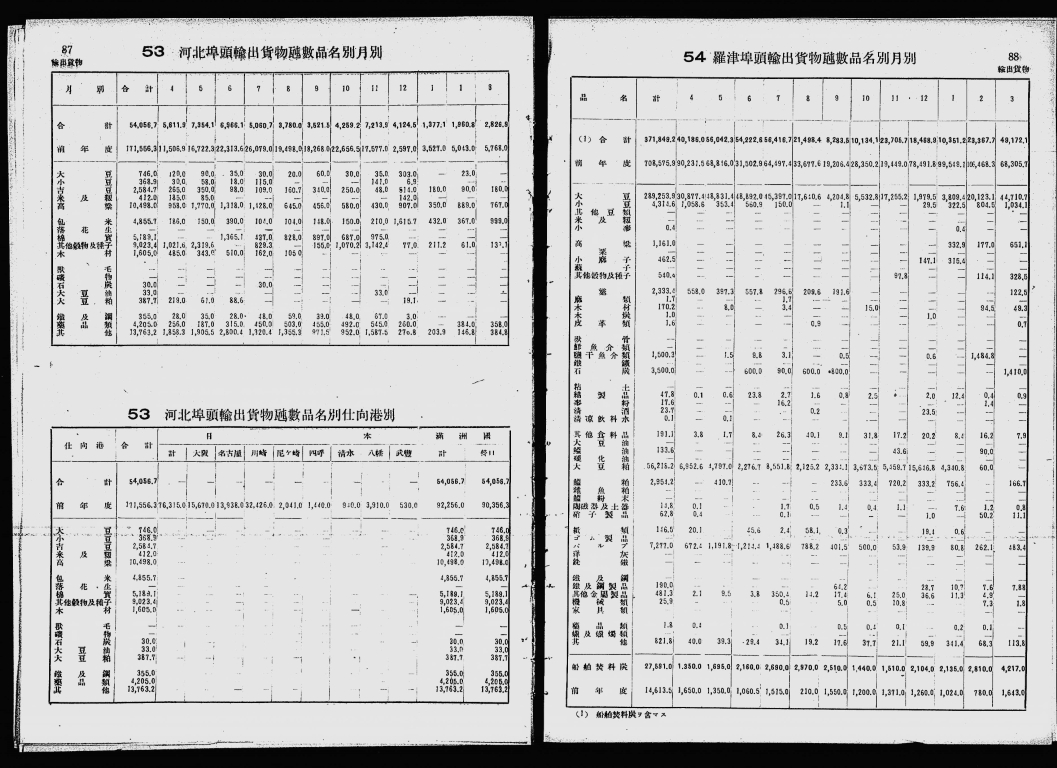 87
輸出貨物
53 河北埠頭輸出貨物噸數品名別月別
月 別 合 計 4 5 6 7 8 9 10 11 12 1 1 3
合 計 54,056.7 5,811.9 7,354.1 6,566.1 5,060.7 3,780.0 3,521.5 4,259.2 7,213.9 4,124.5 1,377.1 1,960.8 2,826.9
前 年 度 11,506.9 16,722.3 22,313.6 26,079.0 19,498.0 18,268.0 22,656.5 17,577.0 2,597.0 3,527.0 5,043.0 5,768.0
大 豆 746.0 120.0 90.0 35.0 30.0 20.0 60.0 30.0 35.0 303.0 — 23.0 —
小 豆 368.9 30.0 58.0 18.0 115.0
吉 豆 2,584.7 265.0 350.0 98.0 109.0 160.7 340.0 250.0 48.0 180.0 90.0 180.0
米 及 籾 412.0 185.0 85.0 142.0
高 粱 10,498.0 958.0 1,770.0 1,318.0 1,428.0 645.0 456.0 580.0 430.0 907.0 350.0 889.0 767.0
包 米 4,855.7 186.0 150.0 390.0 104.0 104.0 148.0 150.0 210.0 1,615.7 432.0 367.0 999.0
落 花 生
棉 實 5,189.1 1,365.1 437.0 828.0 897.0 687.0 975.0
其他穀物及種子 9,023.4 1,021.6 2,319.6 829.3 155.0 1,070.2 3,142.4 77.0 211.2 61.0
木 材 1,605.0 485.0 343.0 510.0 162.0 105.0
獸 毛
礦 物
石 炭 30.0 30.0
大 豆 油 33.0 33.0
大 豆 粕 387.7 219.0 61.0 88.6 19.1
鐵 及 鋼 355.0 28.0 35.0 28.0 48.0 59.0 39.0 48.0 67.0 3.0
藥 品 類 4,205.0 256.0 187.0 315.0 450.0 503.0 455.0 492.0 545.0 260.0 — 384.0 358.0
其 他 13,763.2 1,858.3 1,905.5 2,800.4 1,320.4 1,355.3 971.5 952.0 1,587.5 276.8 203.9 146.8 384.8
53 河北埠頭輸出貨物噸數品名別仕向港別
仕 向 港 合 計 日 本 滿 洲 國
計 大阪 名古屋 川崎 尼ケ崎 四呼 清水 八幡 武豐 計 營口
合 計 54,056.7 54,056.7 54,056.7
前 年 度 76,315.0 15,670.0 13,938.0 32,426.0 2,041.0 1,440.0 940.0 3,910.0 530.0 92,256.0 90,356.3
大 豆 746.0 746.0 746.0
小 豆 368.9 368.9 368.9
吉 豆 2,584.7 2,584.7 2,584.7
米 及 籾 412.0 412.0 412.0
高 粱 10,498.0 10,498.0 10,498.0
包 米 4,855.7 4,855.7 4,855.7
落 花 生
棉 實 5,189.1 5,189.1 5,189.1
其他穀物及種子 9,023.4 9,023.4 9,023.4
木 材 1,605.0 1,605.0 1,605.0
獸 毛
礦 物
石 炭 30.0 30.0 30.0
大 豆 油 33.0 33.0 33.0
大 豆 粕 387.7 387.7 387.7
鐵 及 鋼 355.0 355.0 355.0
藥 品 類 4,205.0 4,205.0 4,205.0
其 他 13,763.2 13,763.2 13,763.2
54 羅津埠頭輸出貨物噸數品名別月別
88
輸出貨物
品 名 計 4 5 6 7 8 9 10 11 12 1 2 3
(1) 合 計 371,849.2 40,186.0 56,042.3 54,222.6 56,416.7 21,498.4 8,283.5 10,134.1 23,706.7 18,468.9 10,351.2 23,367.7 49,172.1
前 年 度 708,575.9 90,231.5 68,816.0 31,502.9 64,497.4 33,677.6 19,206.4 28,350.2 19,449.0 78,491.8 99,549.1 68,305.7
大 豆 289,253.9 30,877.4 48,831.4 48,892.0 45,397.0 17,640.6 4,204.8 5,532.8 17,255.2 1,979.5 3,809.4 20,123.1 44,710.7
小 豆 4,314.6 1,058.6 353.4 560.9 150.0 1.1 29.5 322.5 804.5 1,034.1
其 他 豆 類
米 及 籾
小 麥 0.4 0.4
高 粱 1,161.0 332.9 177.0 651.1
粟
小 麻 子 462.5 147.1 315.4
蘇 子
其他穀物及種子 540.4 97.8 114.1 328.5
鹽 2,333.4 558.0 397.3 557.8 296.6 209.6 191.6 122.5
麻 類 1.7 1.7
木 材 170.2 8.0 3.4 15.0 94.5 49.3
木 炭 1.0 1.0
皮 革 類 1.6 0.9 0.7
獸 骨
鮮 魚 介 類
鹽干魚介類 1,500.3 1.5 9.8 3.1 0.5 0.6 1,484.8
鐵 鑛
石 炭 3,500.0 600.0 90.0 600.0 800.0 1,410.0
粘 土
棉 製 品 47.8 0.1 0.6 23.8 2.7 1.6 0.8 2.5 2.0 12.4 0.4 0.9
麥 粉 17.6 16.2 1.4
清 酒 23.7 0.2 23.5
清 凉 飲 料 水 0.1 0.1
其 他 食 料 品 191.1 3.8 1.7 8.4 26.3 40.1 9.1 31.8 17.2 20.2 8.4 16.2 7.9
大 豆 油
鰮 油 133.6 43.6 90.0
硬 化 油
大 豆 粕 56,216.2 6,952.6 4,797.0 2,276.7 8,551.8 2,125.2 2,334.1 3,673.5 5,459.7 15,646.8 4,340.8 60.0
鰮 粕 2,954.2 410.7 233.6 333.4 720.2 333.2 756.4 166.7
雜 魚 粕
鰮 粉 末
陶磁器及土器 14.8 0.1 1.7 0.5 1.4 0.4 1.1 7.6 1.2 0.8
硝 子 製 品 62.8 0.4 0.1 1.0 50.2 11.1
紙 類 146.5 20.1 45.6 2.4 58.1 0.3 19.4 0.6
ゴ ム 製 品
パ ル プ 7,277.0 672.4 1,191.8 1,488.6 788.2 401.5 500.0 53.9 139.9 80.8 262.1 483.4
洋 灰
銑 鐵
鐵 及 鋼
鐵及鋼製品 190.0 64.2 28.7 10.7 7.6 7.88
其他金屬製品 481.3 2.1 9.5 3.8 350.4 14.2 17.4 6.1 25.0 36.6 11.3 4.9
機 械 類 25.9 0.5 5.0 0.5 10.8 7.3 1.8
家 具 類
藥 品 類 1.8 0.4 0.1 0.5 0.4 0.1 0.2 0.1
蠟及蠟燭類
其 他 821.8 40.0 39.3 29.4 34.1 19.2 17.6 37.7 21.1 59.9 341.4 68.3 113.8
船 舶 焚 料 炭 27,591.0 1,350.0 1,695.0 2,160.0 2,690.0 2,970.0 2,510.0 1,440.0 1,510.0 2,104.0 2,135.0 2,810.0 4,217.0
前 年 度 14,613.5 1,650.0 1,350.0 1,060.5 1,515.0 210.0 1,550.0 1,200.0 1,371.0 1,260.0 1,024.0 780.0 1,643.0
(1) 船舶焚料炭ヲ含マス